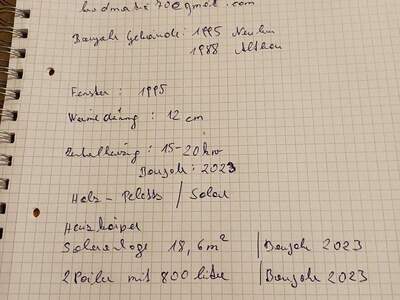 Baujahr Gebäude: 1995 Neubau
1988 Altbau
Fenster: 1995
Wärmedämmung: 12 cm
Zentralheizung: 15-20 kw
Baujahr: 2023
Holz-Pellets / Solar
Heizkörper
Solaranlage 18,6 m² / Baujahr 2023
2 Boiler mit 800 liter / Baujahr 2023